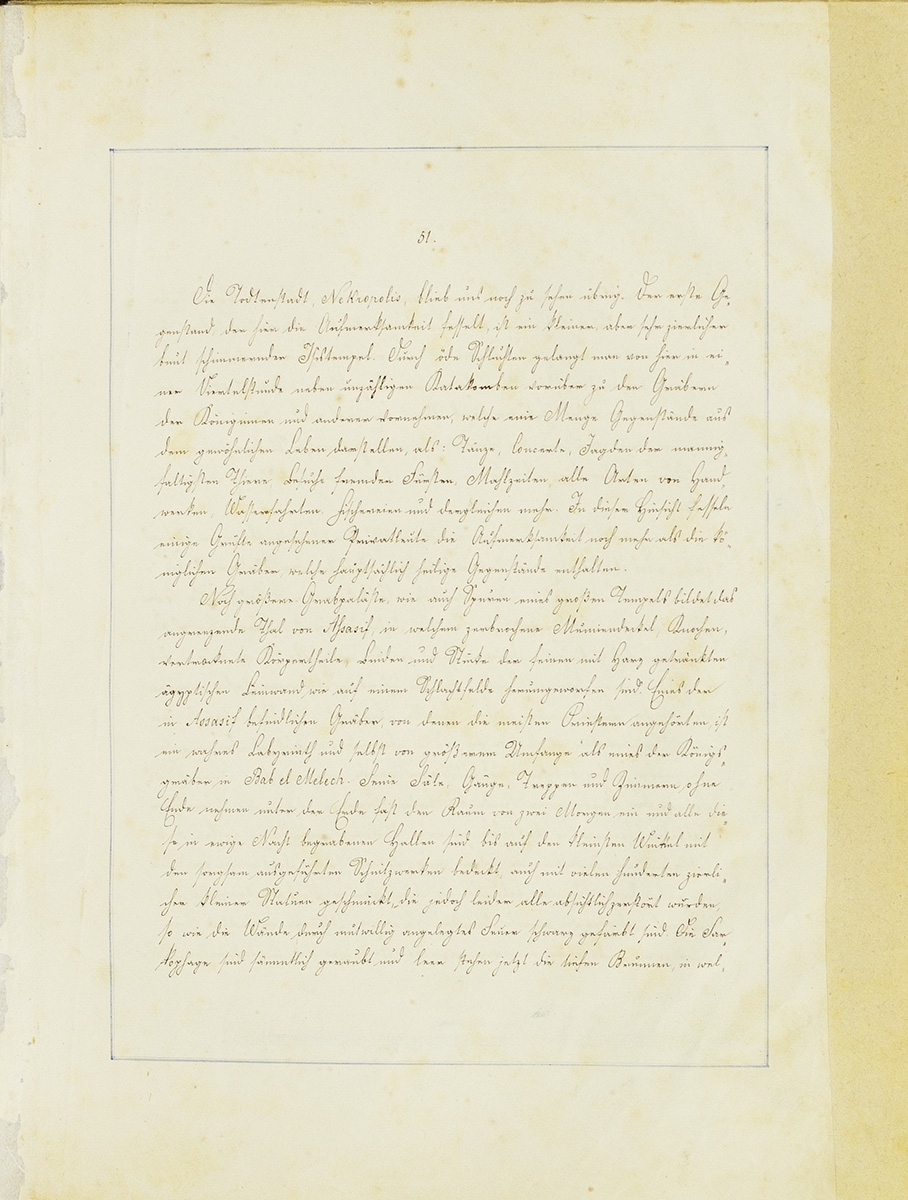 51.
Die Todtenstadt, Nekropolis, blieb uns noch zu sehen übrig. Der erste Ge-
genstand der hier die Aufmerksamkeit fesselt, ist ein kleiner, aber sehr zierlicher
bunt schimmernder Isistempel. Durch öde Schluchten gelangt man von hier in ei-
ner Viertelstunde neben unzähligen Katakomben vorüber zu den Gräbern
der Königinnen und anderer Vornehmen, welche eine Menge Gegenstände aus
dem gewöhnlichen Leben darstellen, als: Tänze, Concerte, Jagden der mannig-
faltigsten Thiere, Besuche fremder Fürsten, Mahlzeiten, alle Arten von Hand-
werken, Wasserfahrten, Fischereien und dergleichen mehr. In dieser Hinsicht fesseln
einige Grüfte angesehener Privatleute die Aufmerksamkeit noch mehr als die kö-
niglichen Gräber, welche hauptsächlich heilige Gegenstände enthalten.
Noch größere Grabpaläste, wie auch Spuren eines großen Tempels bildet das
angrenzende Thal von Assasif, in welchem zerbrochene Mumiendeckel, Knochen,
vertrocknete Körpertheile, Binden und Stücke der feinen mit Harz getränkten
ägyptischen Leinwand, wie auf einem Schlachtfelde herumgeworfen sind. Eines der
in Assasif befindlichen Gräber, von denen die meisten Priestern angehörten, ist
ein wahres Labyrinth und selbst von größerem Umfange als eines der Königs-
gräber in Bab el Melech. Seine Säle, Gänge, Treppen und Zimmern ohne
Ende nehmen unter der Erde fast den Raum von zwei Morgen ein und alle die-
se in ewige Nacht begrabenen Hallen sind bis auf den kleinsten Winkel mit
den sorgsam ausgeführten Schnitzwerken bedeckt, auch mit vielen hunderten zierli-
cher kleiner Statuen geschmückt, die jedoch leider alle absichtlich zerstört wurden,
so wie die Wände durch mutwillig angelegtes Feuer schwarz gefärbt sind. Die Sar-
kophage sind sämmtlich geraubt und leer stehen jetzt die tiefen Brunnen, in wel-